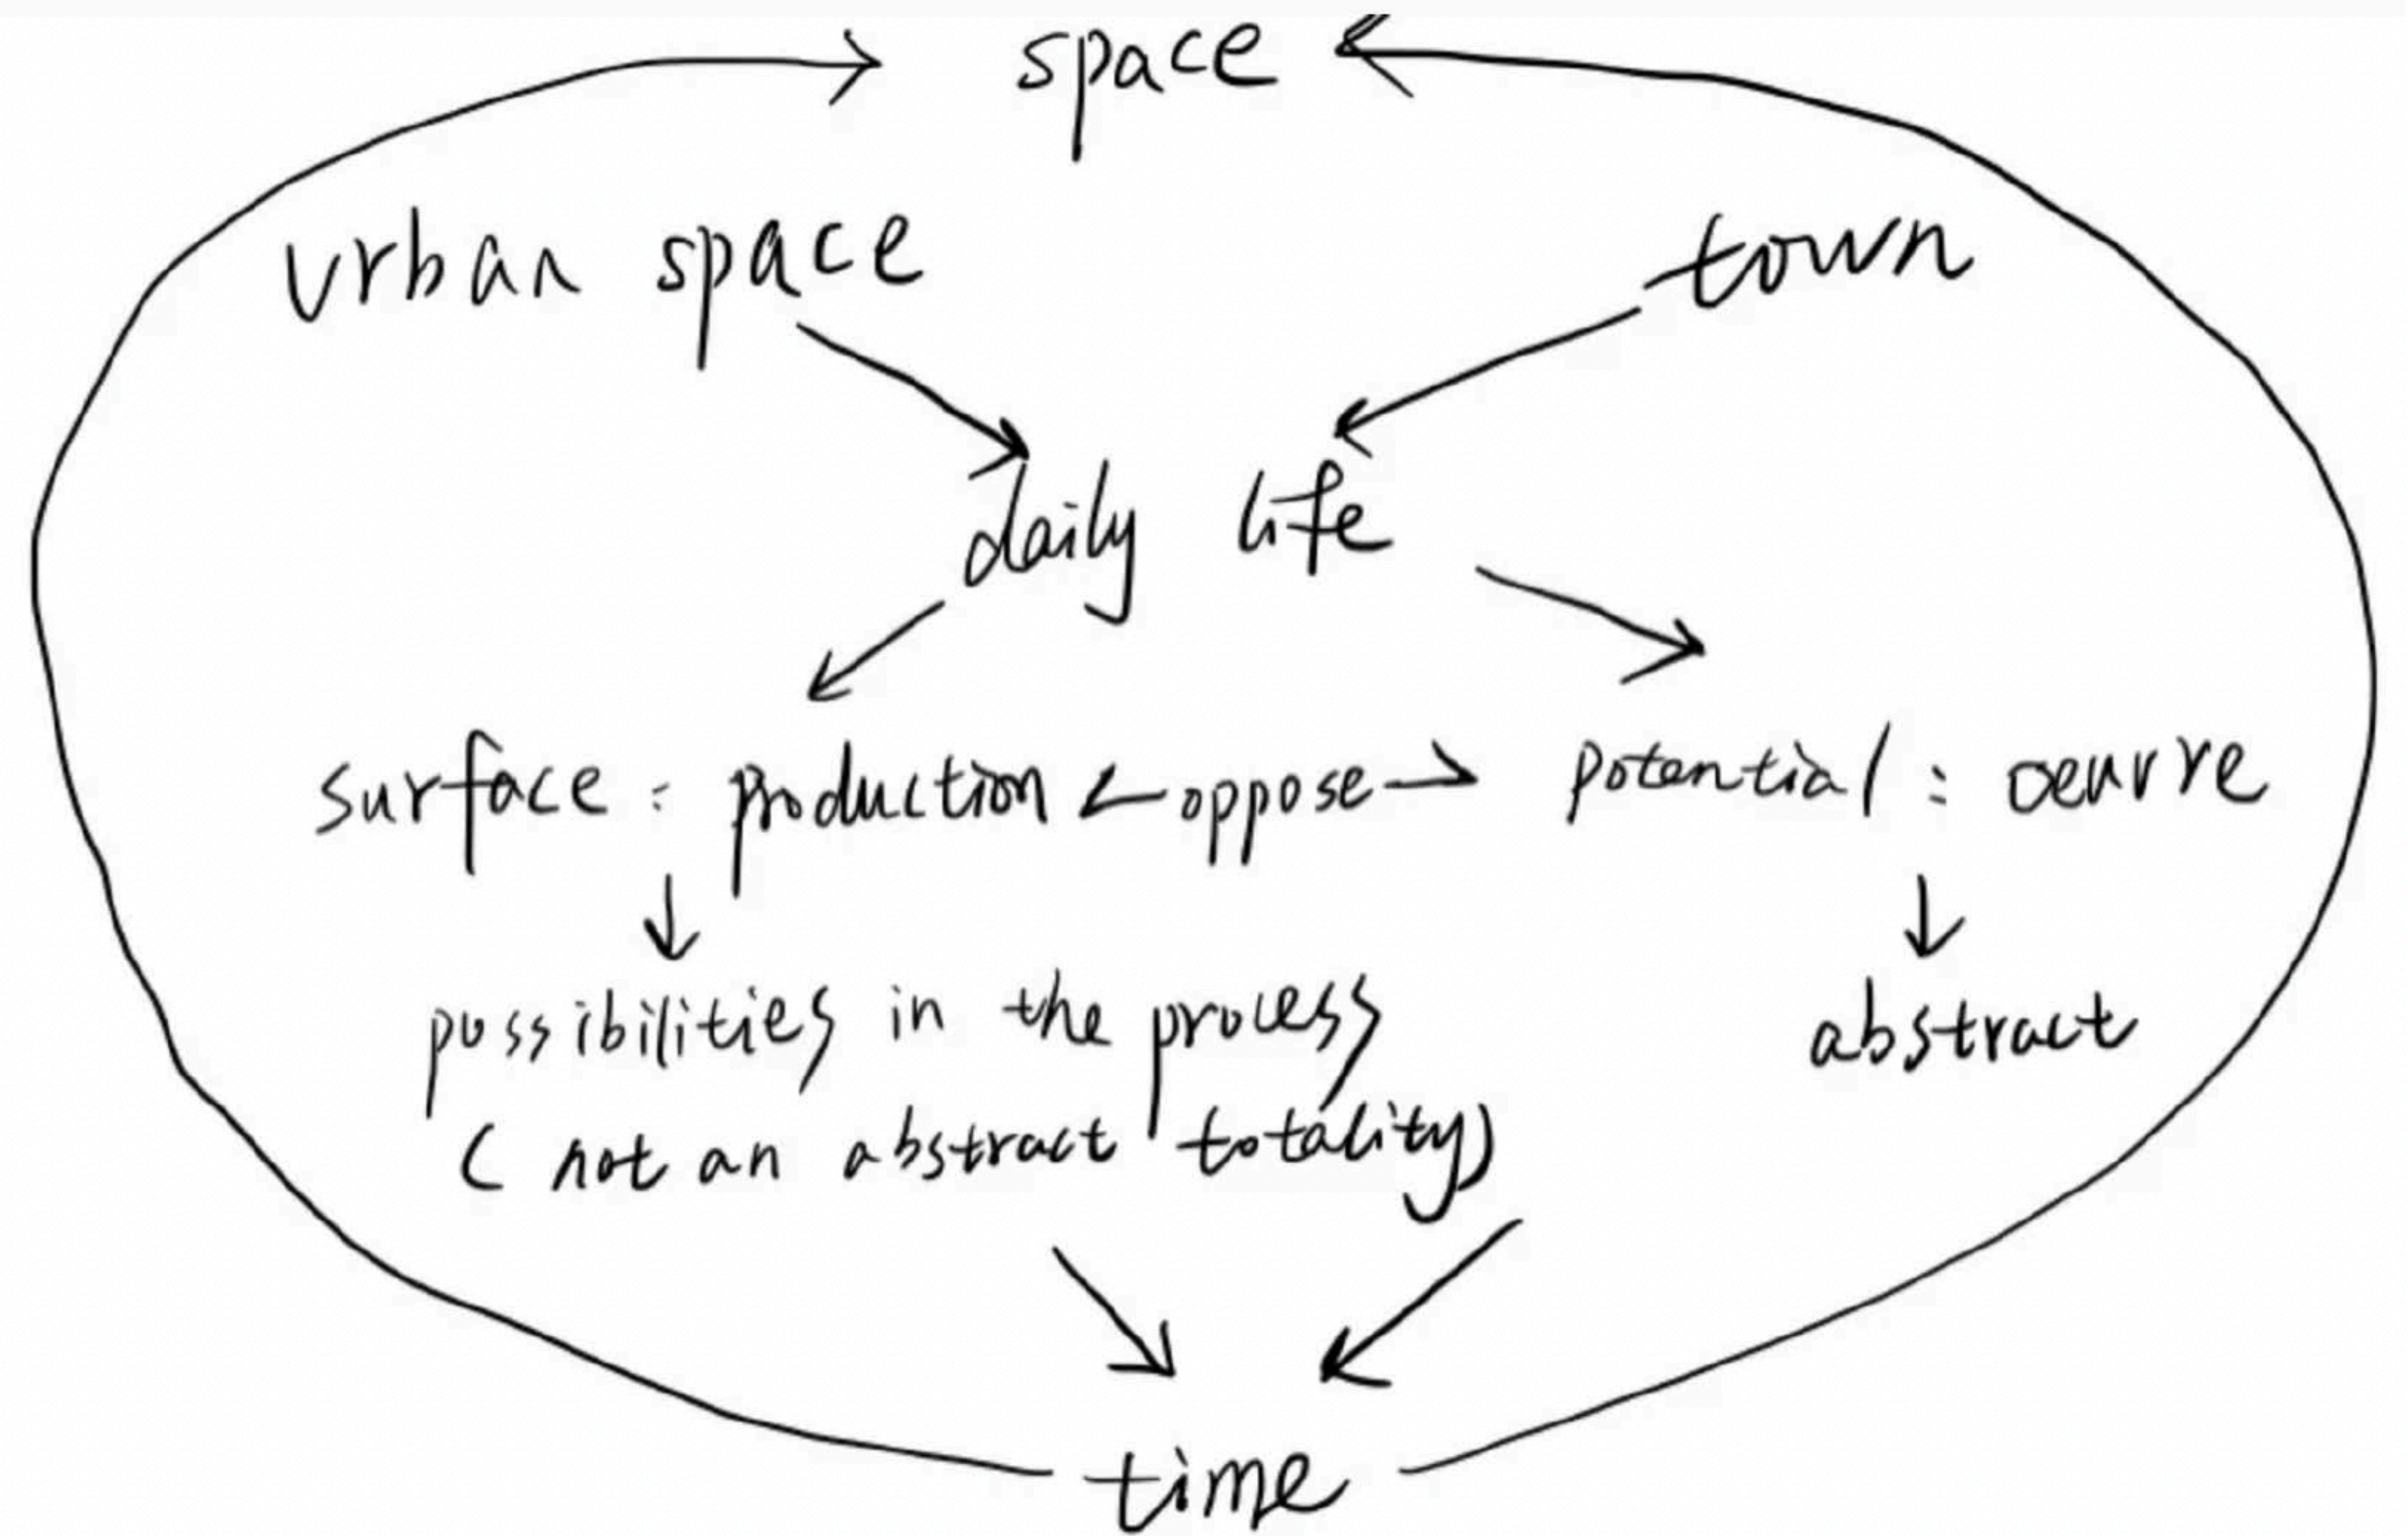 space
urban space town
daily life
surface : production oppose potential : oeuvre
possibilities in the process abstract
( not an abstract totality)
time